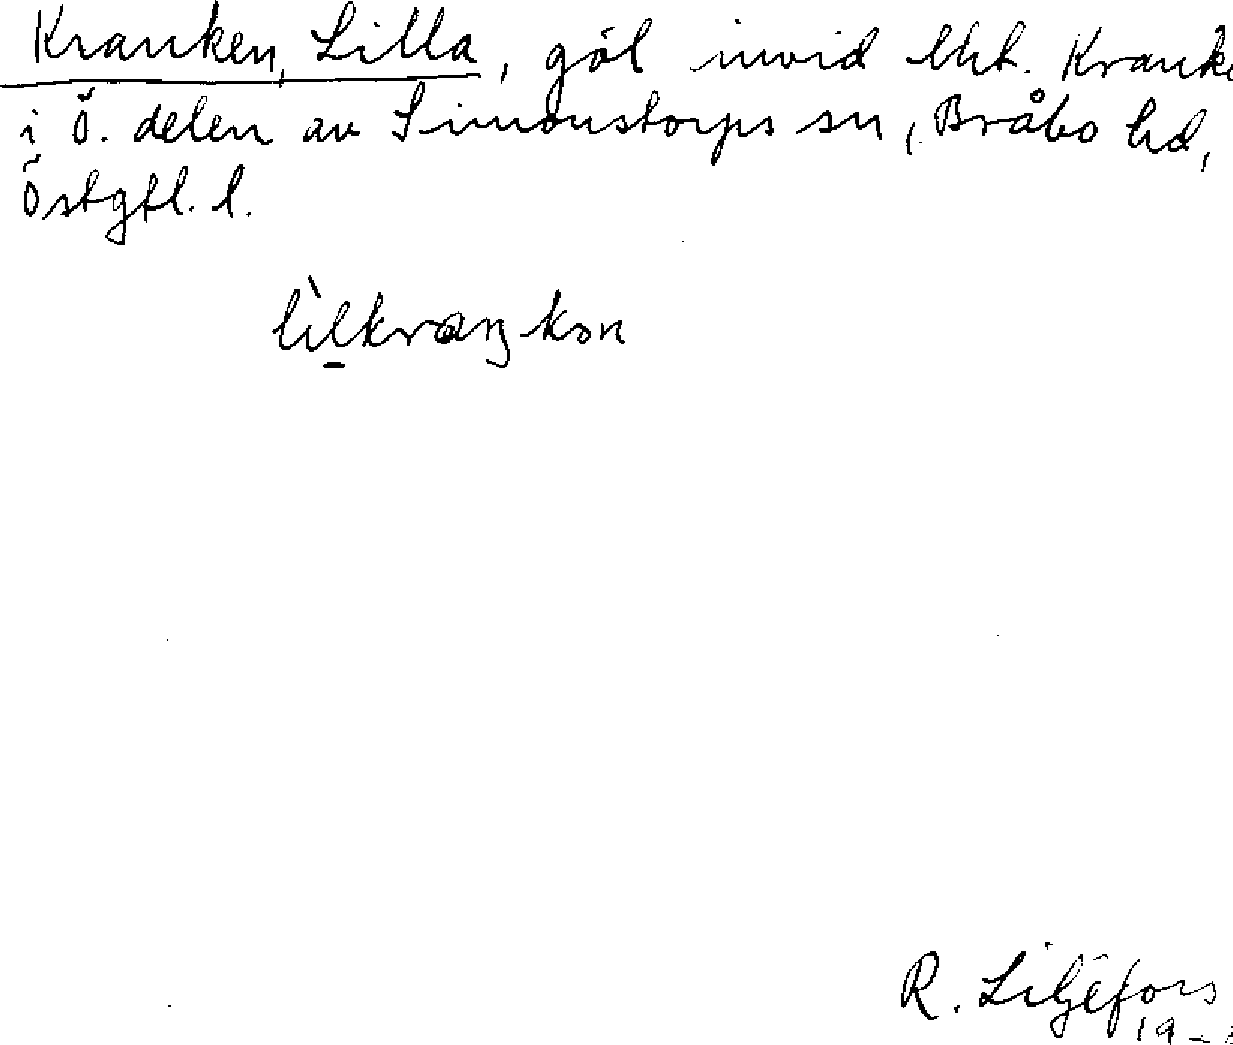 Kranken, Lilla, göl invid lht. Kranke
i Ö. delen av Simonstorps sn, Bråbo hd,
Östgtl. l.
lìlkraŋkon
R. Liljefors
19-